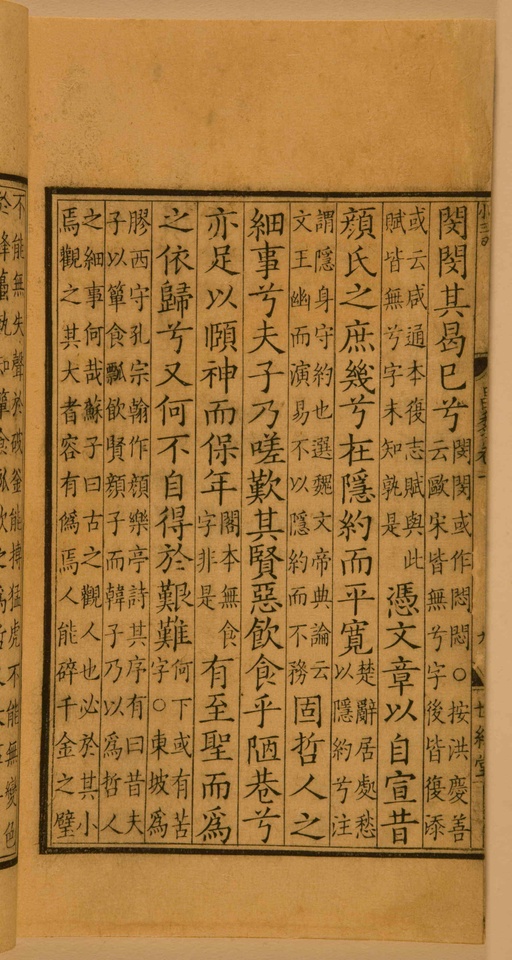 閔閔其曷已兮閔閔或作悶悶○按洪慶善
云歐宋皆無兮字後皆復添
或云咸通本復志賦與此
賦皆無兮字未知孰是憑文章以自宣昔
顔氏之庶幾兮在隱約而平寬楚辭居處愁
以隱約兮注
謂隱身守約也選魏文帝典論云
文王幽而演易不以隱約而不務固哲人之
細事兮夫子乃嗟歎其賢惡飲食乎陋巷兮
亦足以頤神而保年閣本無食
字非是有至聖而爲
之依歸兮又何不自得於艱難何下或有苦
字○東坡爲
膠西守孔宗翰作顔樂亭詩其序有曰昔夫
子以簞食瓢飲賢顔子而韓子乃以爲哲人
之細事何哉蘇子曰古之觀人也必於其小
焉觀之其大者容有僞焉人能碎千金之璧
不能無失聲於破釜能搏猛虎不能無變色
於蜂蠆孰知簞食瓢飲之爲哲人